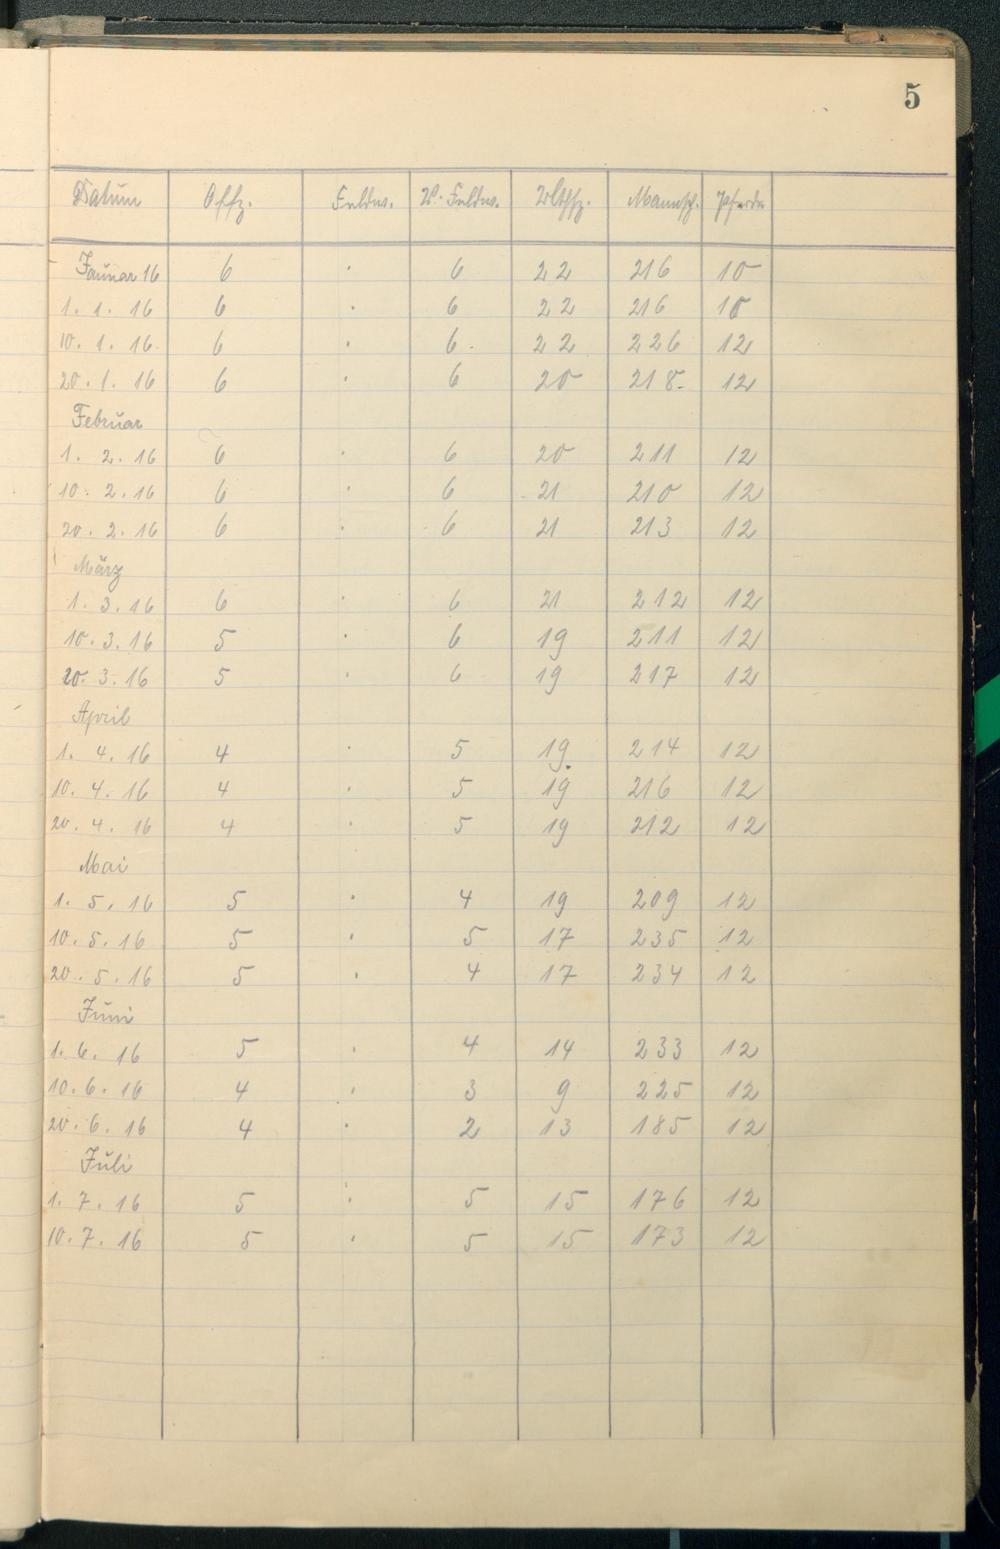 5
Datum Offz. Feldw. V. Feldw. Utffz. Mannsch. Pferde
Januar 16 6 . 6 22 216 10
1. 1. 16 6 . 6 22 216 10
10. 1. 16 6 . 6. 22 226 12
20. 1. 16 6 . 6 20 218 12
Februar
1. 2. 16 6 . 6 20 211 12
10. 2. 16 6 . 6 21 210 12
20. 2. 16 6 . 6 21 213 12
März
1. 3. 16 6 . 6 21 212 12
10. 3. 16 5 . 6 19 211 12
20. 3. 16 5 . 6 19 217 12
April
1. 4. 16 4 . 5 19. 214 12
10. 4. 16 4 . 5 19 216 12
20. 4. 16 4 . 5 19 212 12
Mai
1. 5. 16 5 . 4 19 209 12
10. 5. 16 5 . 5 17 235 12
20. 5. 16 5 . 4 17 234 12
Juni
1. 6. 16 5 . 4 14 233 12
10. 6. 16 4 . 3 9 225 12
20. 6. 16 4 . 2 13 185 12
Juli
1. 7. 16 5 . 5 15 176 12
10. 7. 16 5 . 5 15 173 12